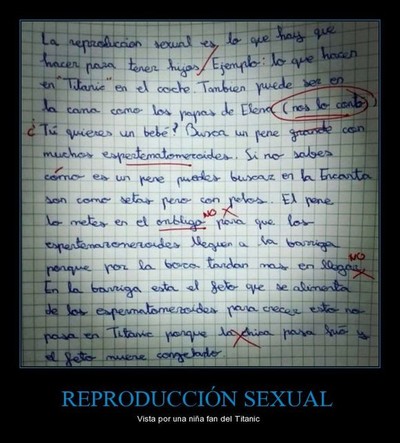 La reproduccion sexual es lo que hay que
hacer para tener hijos. Ejemplo: lo que hacen
en "Titanic" en el coche. Tambien puede ser en
la cama como los papas de Elena (nos lo conto)
¿Tú quieres un bebé? Busca un pene grande con
muchos espertematomeroides. Si no sabes
cómo es un pene puedes buscar en la Encarta
son como setas pero con pelos. El pene
lo metes en el onbligo para que los
NO
espertemaromeroides lleguen a la barriga
porque por la boca tardan mas en llegar.
NO
En la barriga esta el feto que se alimenta
de los espermatomeroides para crecer esto no
pasa en Titanic porque la chica pasa frío y
el feto muere congelado.
REPRODUCCIÓN SEXUAL
Vista por una niña fan del Titanic